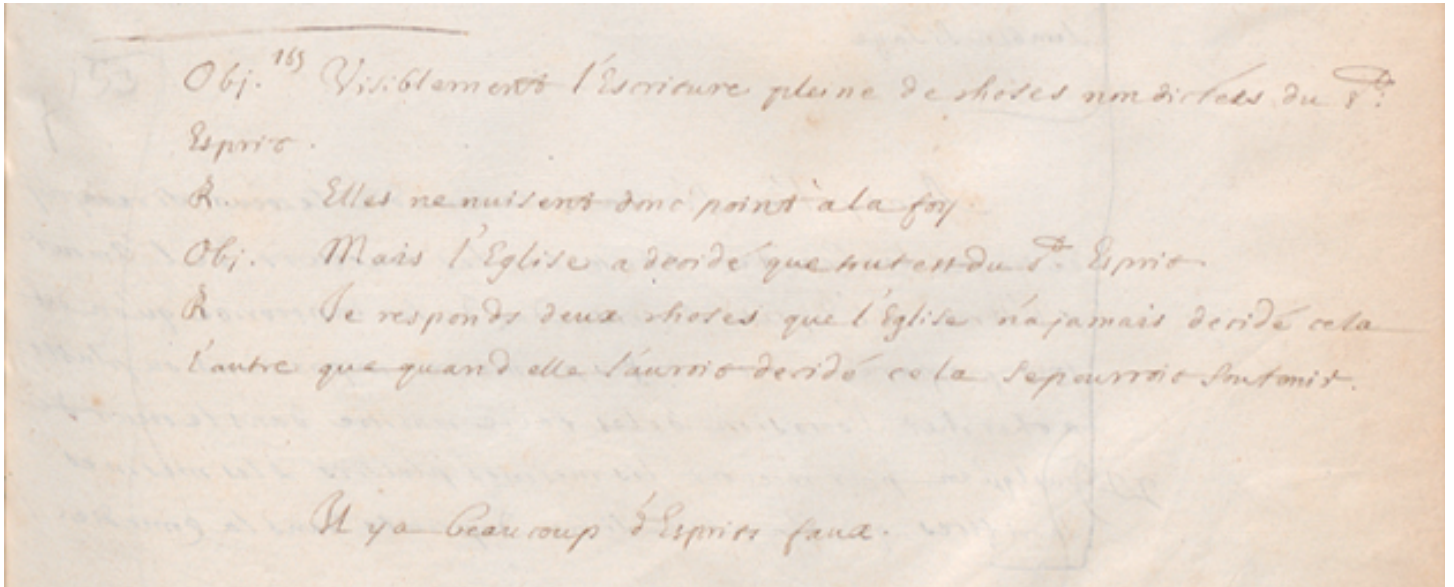 Obj. 163 Visiblement l'Escriture pleine de choses non dictées du St.
Esprit.
R Elles ne nuisent donc point à la foy
Obj. Mais l'Eglise a decidé que tout est du St. Esprit
R Je responds deux choses que l'Eglise n'a jamais decidé cela
l'autre que quand elle l'auroit decidé cela se pourroit soutenir.
Il y a beaucoup d'Esprits faux.